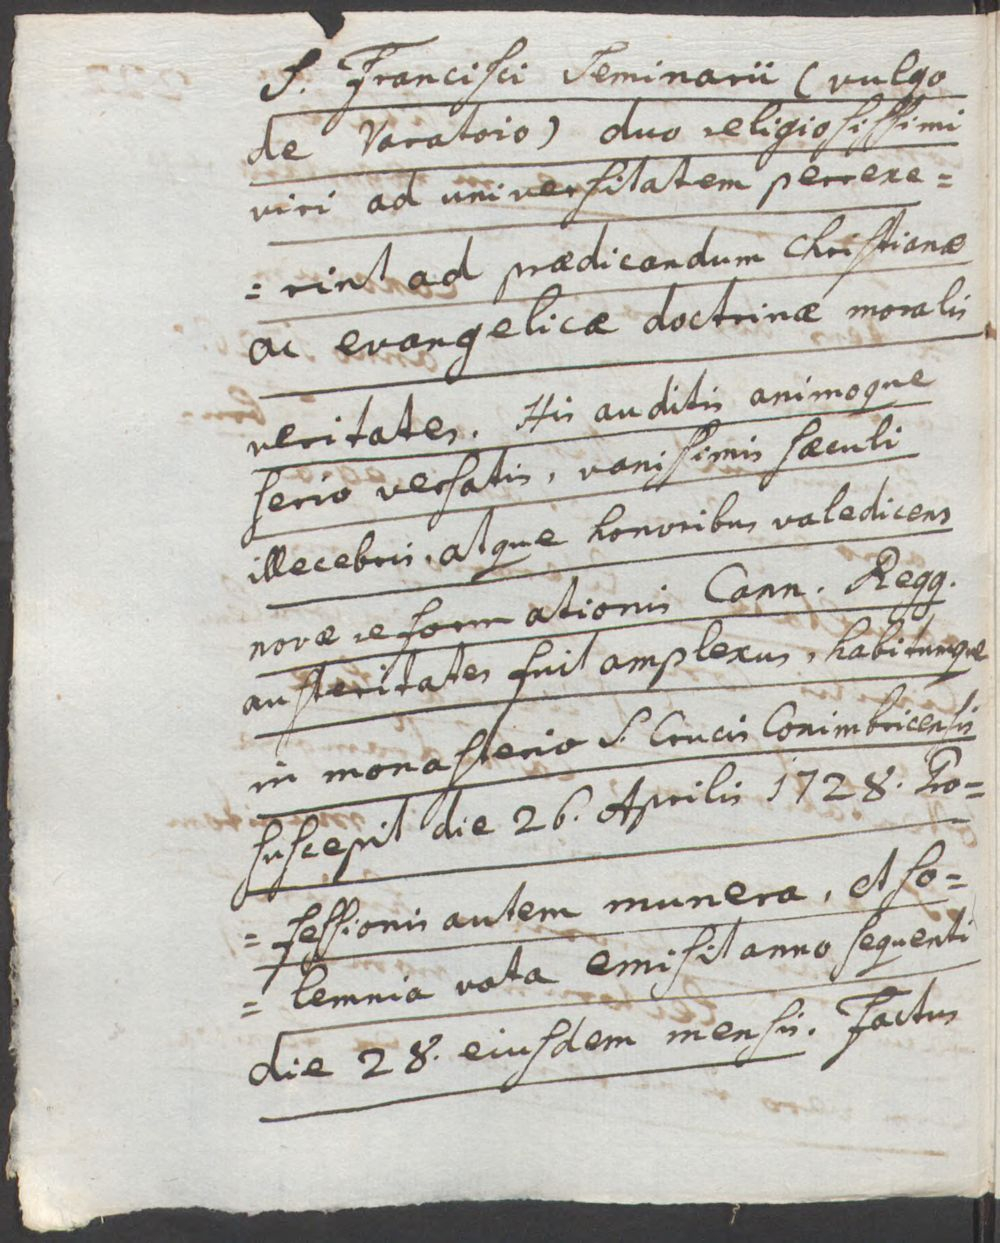 S. Francisci Seminarii (vulgo
de Varatoio) duo religiosissimi
viri ad universitatem perrexe=
=rint ad prædicandum christianæ
ac evangelicæ doctrinæ moralis
veritates. His auditis animoque
serio versatis, vanissimis sæculi
illecebris, atque honoribus valedicens
novæ reformationis Cann. Regg.
austeritates fuit amplexus, habitumque
in monasterio S. Crucis Conimbricensis
suscepit die 26. Aprilis 1728. Pro=
=fessionis autem munera, et so=
=lemnia vota emisit anno sequenti
die 28. eiusdem mensis. Factus